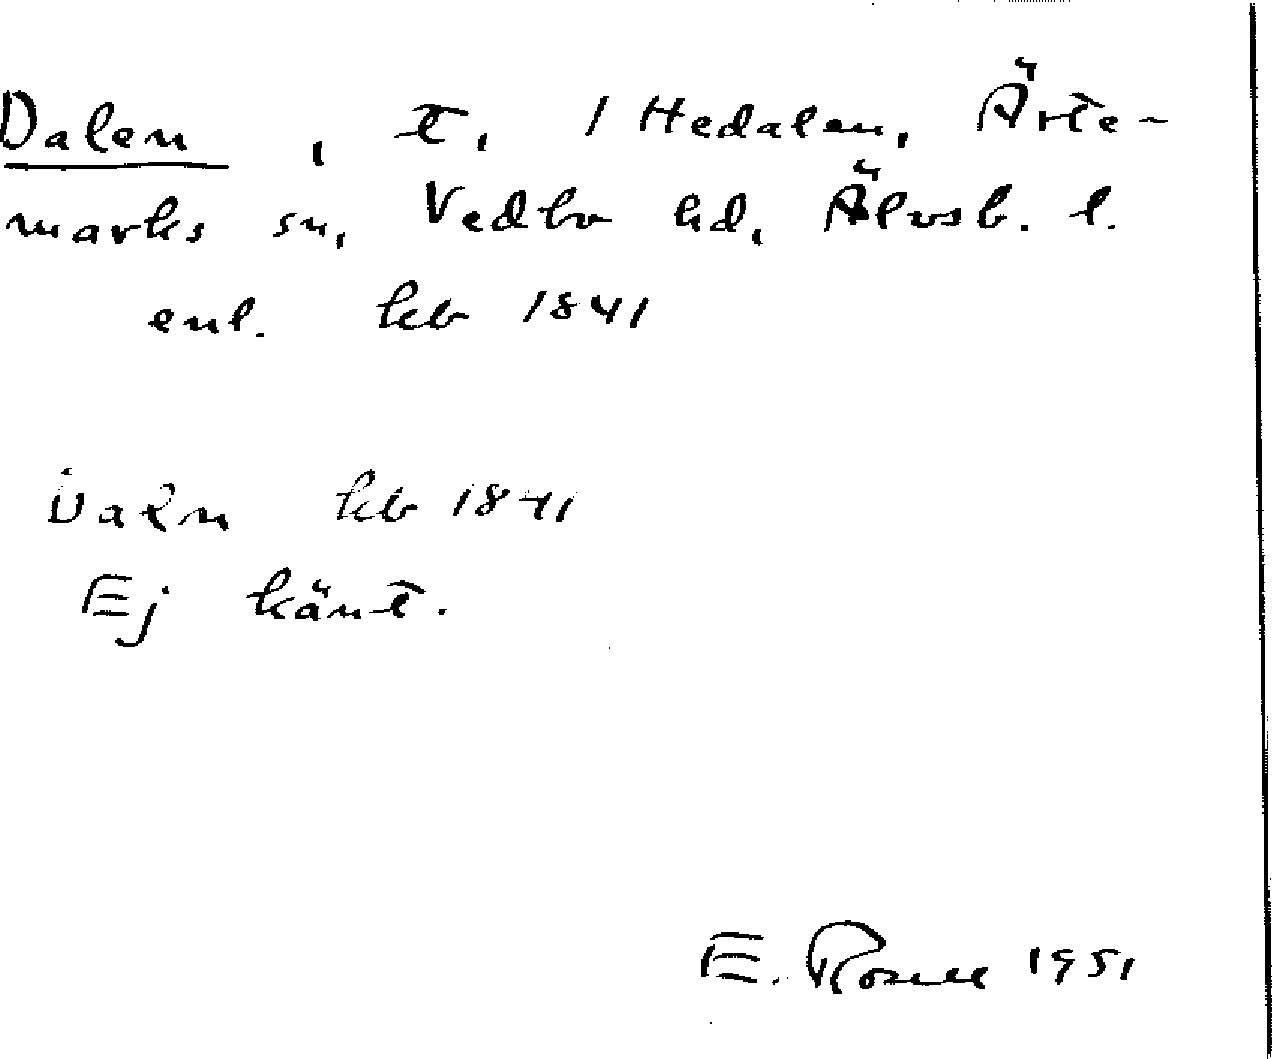 Dalen, t, 1 Hedalen, Ärte-
marks sn, Vedbo hd, Älvsb. l.
enl. kb 1841
Daln kb 1841
Ej känt.
E. Rosell 1951